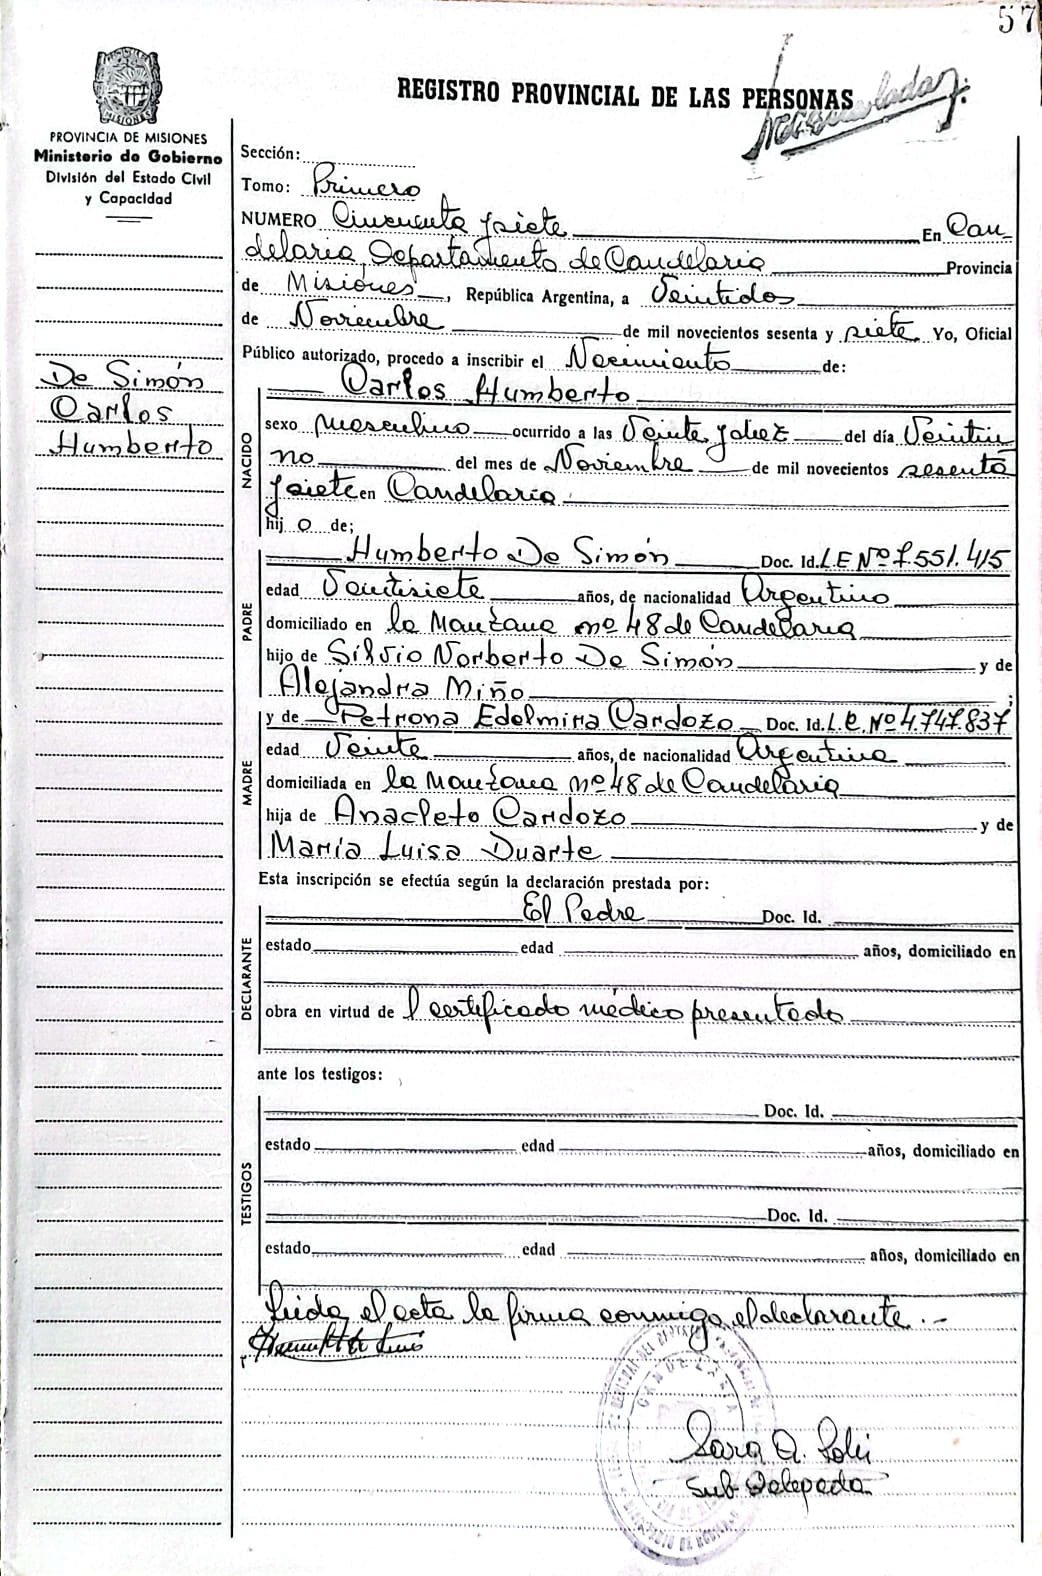 57
REGISTRO PROVINCIAL DE LAS PERSONAS
PROVINCIA DE MISIONES
Ministerio de Gobierno
División del Estado Civil
y Capacidad
De Simón
Carlos
Humberto
Sección:
Tomo: Primero
NUMERO Cincuenta y siete En Can
delaria, Departamento de Candelaria Provincia
de Misiones, República Argentina, a Veintidos
de Noviembre de mil novecientos sesenta y siete Yo, Oficial
Público autorizado, procedo a inscribir el Nacimiento de:
NACIDO
Carlos Humberto
sexo masculino ocurrido a las Veinte y diez del día Veintiu
no del mes de Noviembre de mil novecientos sesenta
y siete en Candelaria
hij o de;
PADRE
Humberto De Simón Doc. Id. L.E Nº 7.551.415
edad Veintisiete años, de nacionalidad Argentino
domiciliado en la Manzana nº 48 de Candelaria
hijo de Silvio Norberto De Simón y de
Alejandra Miño;
MADRE
y de Petrona Edelmira Cardozo Doc. Id. L.C. Nº 4.747.837
edad Veinte años, de nacionalidad Argentina
domiciliada en la Manzana nº 48 de Candelaria
hija de Anacleto Cardozo y de
María Luisa Duarte
Esta inscripción se efectúa según la declaración prestada por:
DECLARANTE
El Padre Doc. Id.
estado edad años, domiciliado en
obra en virtud de l certificado médico presentado
ante los testigos:
TESTIGOS
Doc. Id.
estado edad años, domiciliado en
Doc. Id.
estado edad años, domiciliado en
Leida el acta la firma conmigo el declarante.-
Sara A.
Sub Delegada